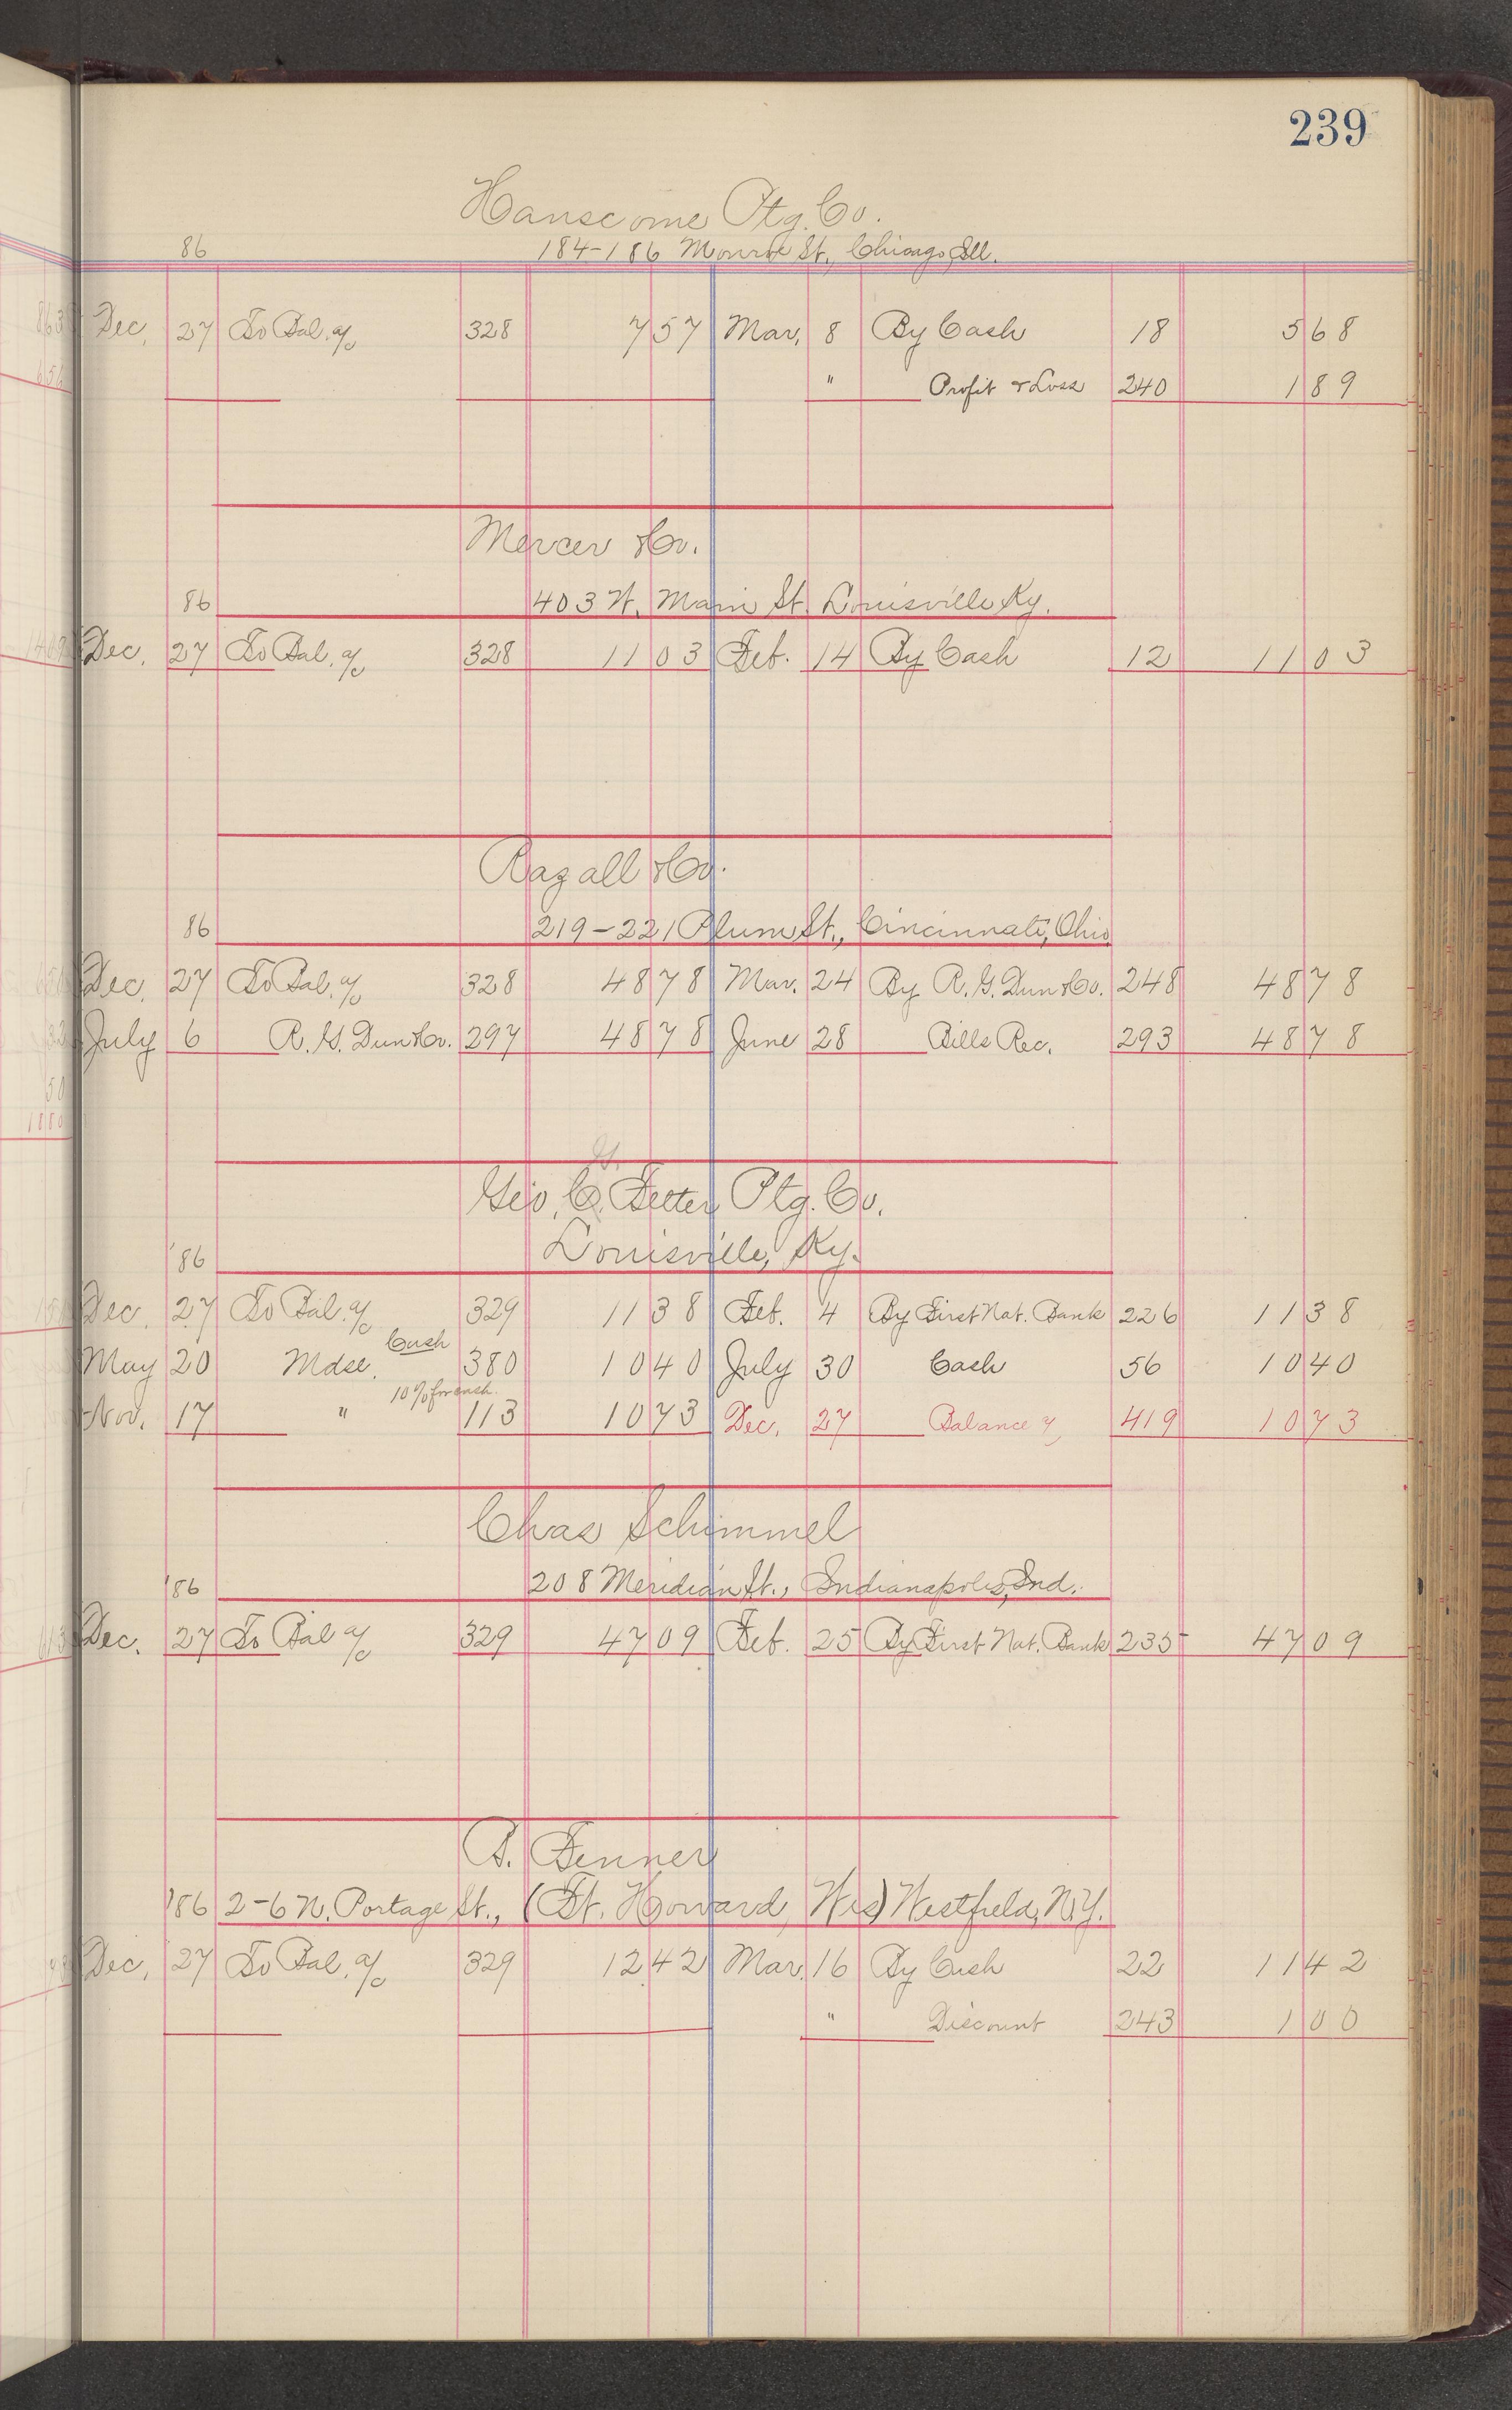 239
Hanscome Ptg. Co.
86 184-186 Monroe St., Chicago, Ill.
Dec. 27 To Bal. a/c 328 7 57 Mar. 8 By Cash 18 5 68
" Profit & Loss 240 1 89
Mercer & Co.
86 403 W. Main St. Louisville Ky.
Dec. 27 To Bal. a/c 328 11 03 Feb. 14 By Cash 12 11 03
Razall & Co.
86 219-221 Plum St., Cincinnati, Ohio
Dec. 27 To Bal. a/c 328 48 78 Mar. 24 By R. G. Dun & Co. 248 48 78
July 6 R. G. Dun & Co. 297 48 78 June 28 Bills Rec. 293 48 78
G.
Geo. C. Fetter Ptg. Co.
'86 Louisville, Ky.
Dec. 27 To Bal. a/c 329 11 38 Feb. 4 By First Nat. Bank 226 11 38
Cash
May 20 Mdse. 380 10 40 July 30 Cash 56 10 40
10% for cash.
Nov. 17 " 113 10 73 Dec. 27 Balance a/c 419 10 73
Chas Schimmel
'86 208 Meridian St., Indianapolis, Ind.
Dec. 27 To Bal a/c 329 47 09 Feb. 25 By First Nat. Bank 235 47 09
B. Fenner
'86 2-6 N. Portage St., (Ft. Howard, Wis) Westfield, N.Y.
Dec. 27 To Bal. a/c 329 12 42 Mar. 16 By Cash 22 11 42
" Discount 243 1 00